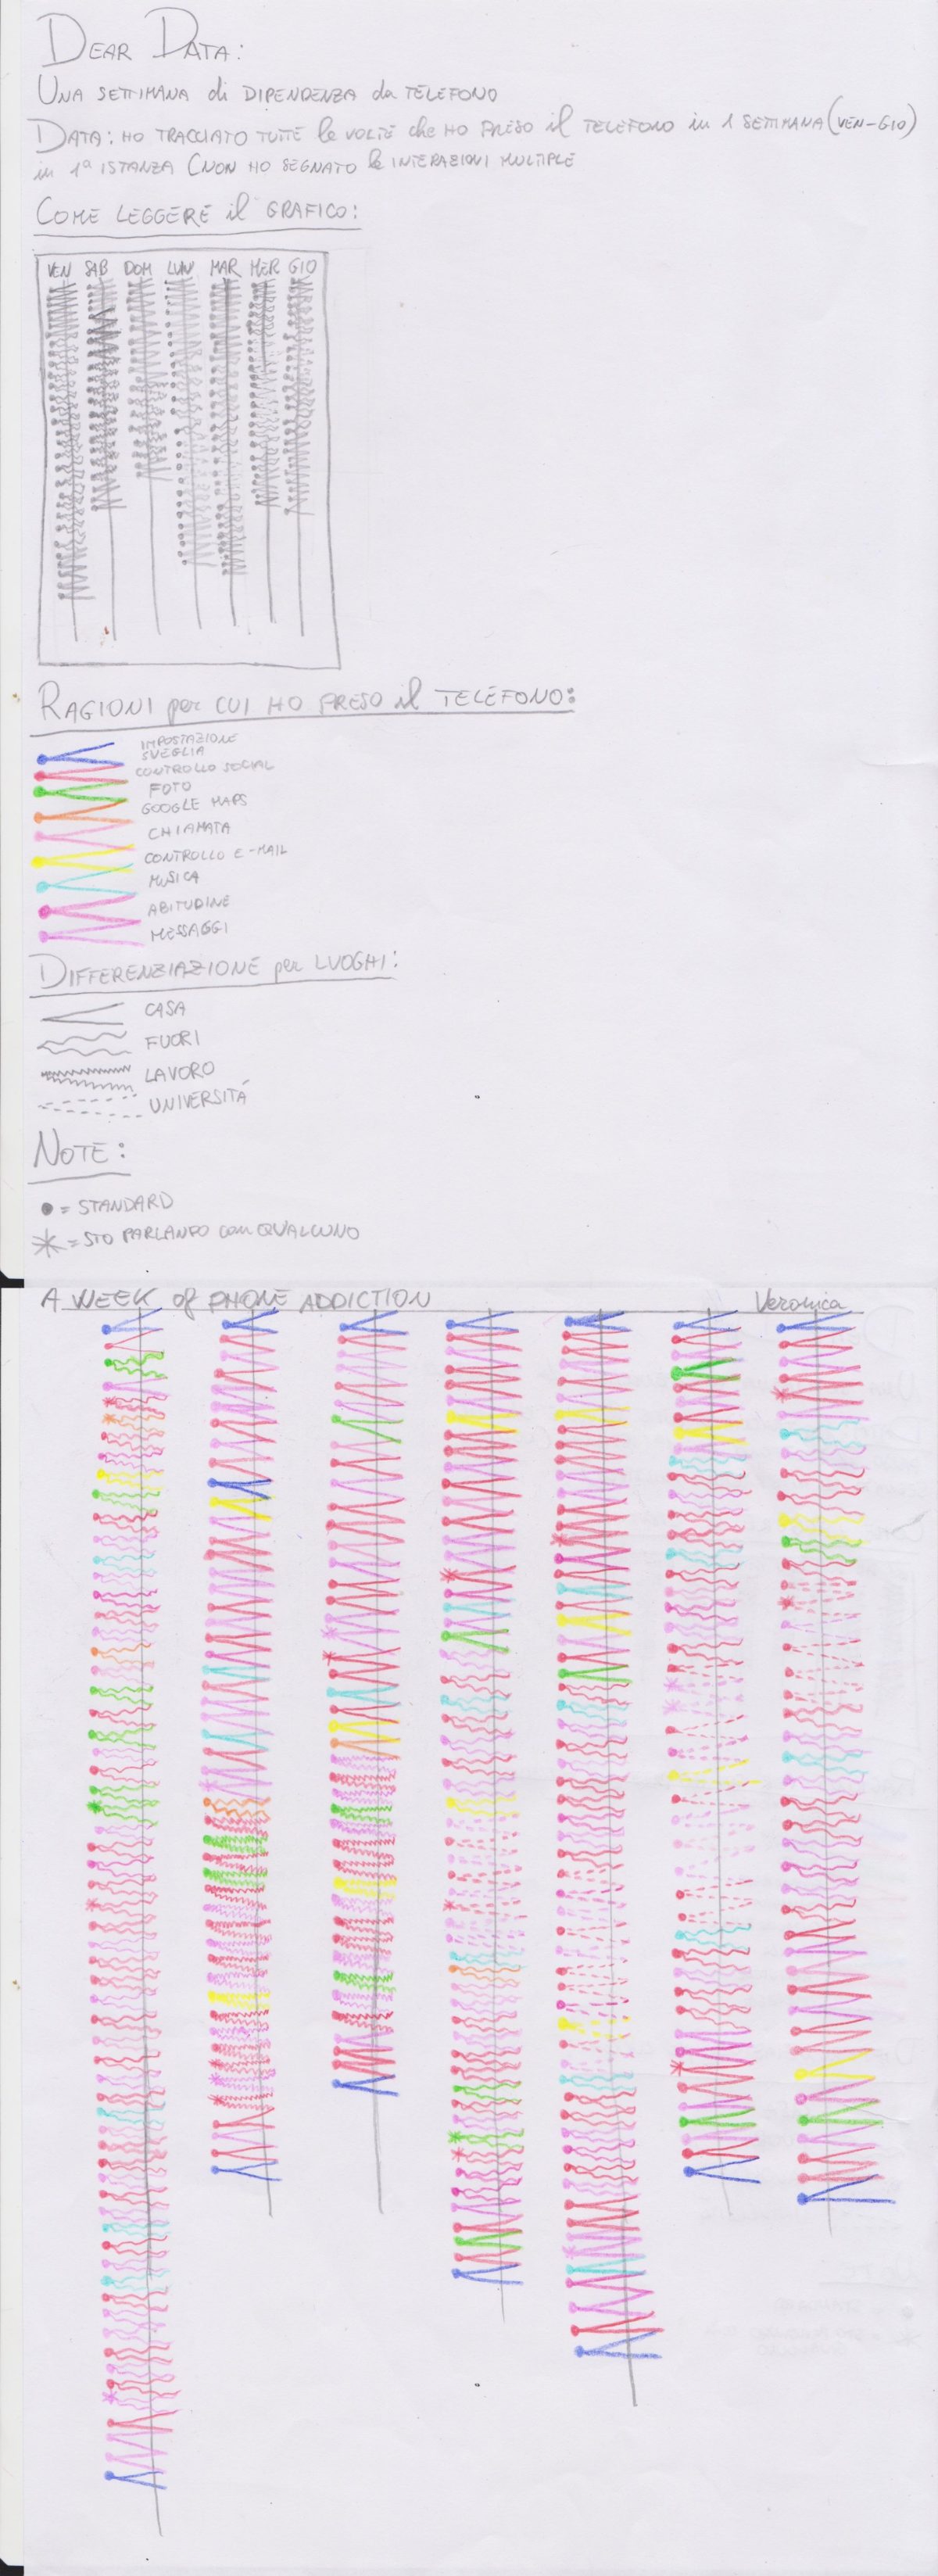 DEAR DATA:
UNA SETTIMANA di DIPENDENZA da TELEFONO
DATA: HO TRACCIATO TUTTE le VOLTE che HO PRESO il TELEFONO in 1 SETTIMANA (VEN-GIO)
in 1ª ISTANZA (NON HO SEGNATO le INTERAZIONI MULTIPLE
COME LEGGERE il GRAFICO:
VEN SAB DOM LUN MAR MER GIO
RAGIONI per CUI HO PRESO il TELEFONO:
IMPOSTAZIONE
SVEGLIA
CONTROLLO SOCIAL
FOTO
GOOGLE MAPS
CHIAMATA
CONTROLLO E-MAIL
MUSICA
ABITUDINE
MESSAGGI
DIFFERENZIAZIONE per LUOGHI:
CASA
FUORI
LAVORO
UNIVERSITÁ
NOTE:
● = STANDARD
* = STO PARLANDO con QUALCUNO
A WEEK of PHONE ADDICTION Veronica